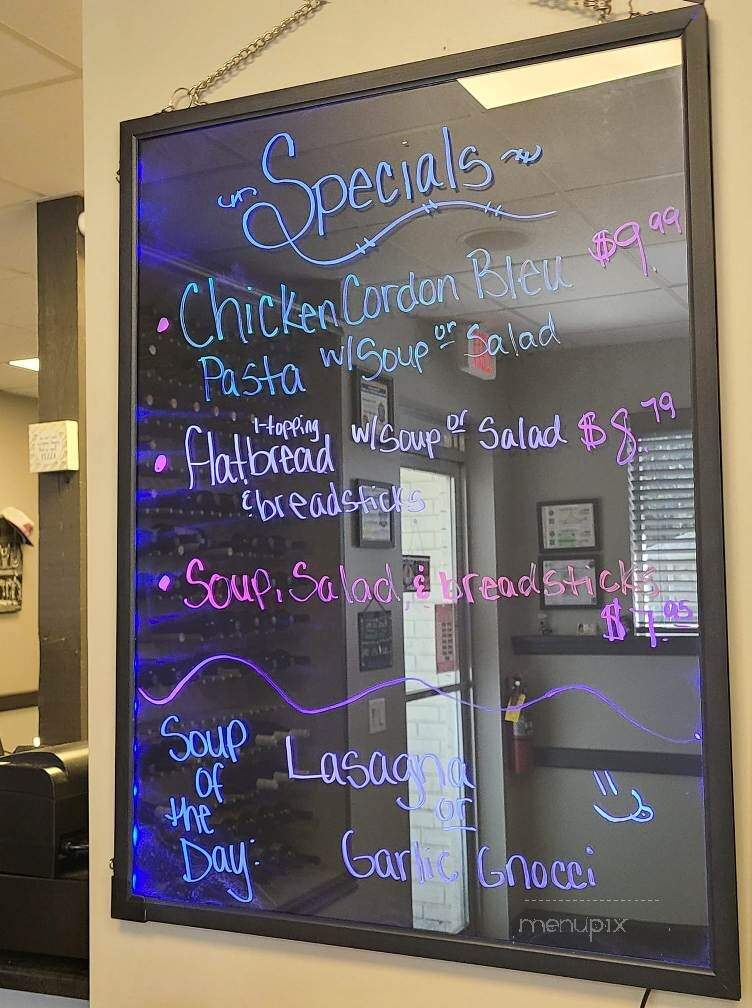 Specials
• Chicken Cordon Bleu $9.99
Pasta w/Soup or Salad
• 1-topping
Flatbread w/Soup or Salad $8.79
& breadsticks
• Soup, Salad, & breadsticks
$7.95
Soup of the Day:
Lasagna
or
Garlic Gnocci
menupix